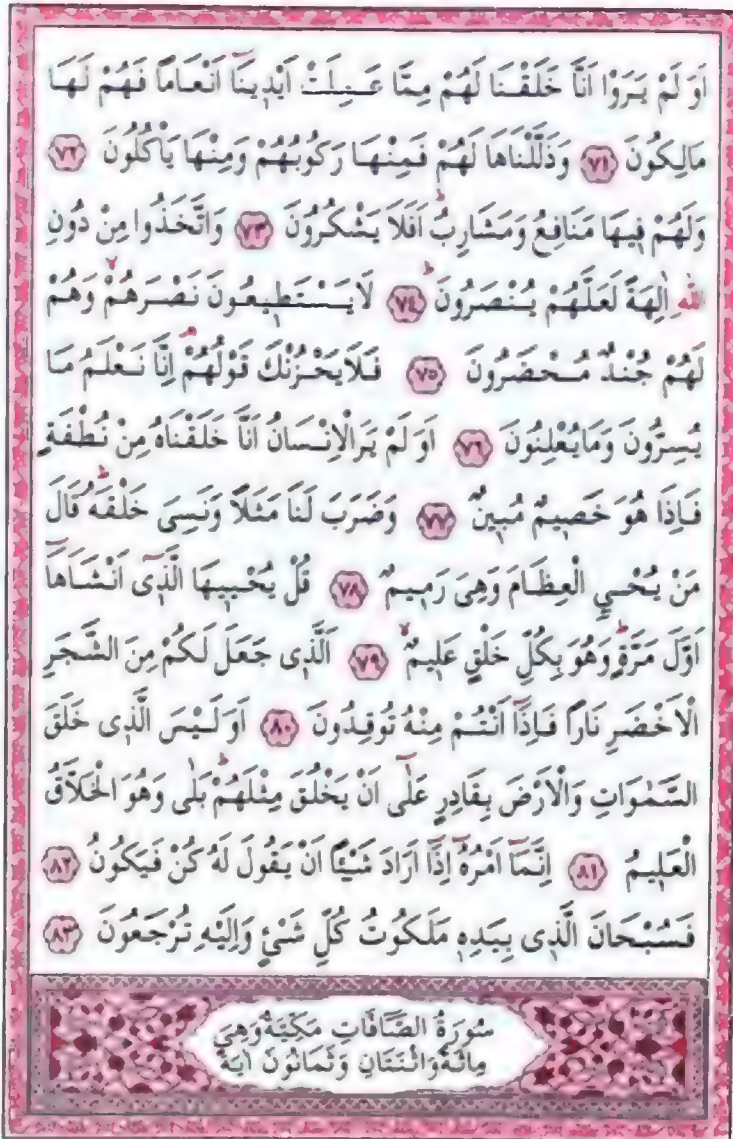 اَوَ لَمْ يَرَوْا اَنَّا خَلَقْنَا لَهُمْ مِمَّا عَمِلَتْ اَيْدِينَٓا اَنْعَامًا فَهُمْ لَهَا
مَالِكُونَ ﴿٧١﴾ وَذَلَّلْنَاهَا لَهُمْ فَمِنْهَا رَكُوبُهُمْ وَمِنْهَا يَأْكُلُونَ ﴿٧٢﴾
وَلَهُمْ فِيهَا مَنَافِعُ وَمَشَارِبُۜ اَفَلَا يَشْكُرُونَ ﴿٧٣﴾ وَاتَّخَذُوا مِنْ دُونِ
اللّٰهِ اٰلِهَةً لَعَلَّهُمْ يُنْصَرُونَۜ ﴿٧٤﴾ لَا يَسْتَطِيعُونَ نَصْرَهُمْۙ وَهُمْ
لَهُمْ جُنْدٌ مُحْضَرُونَ ﴿٧٥﴾ فَلَا يَحْزُنْكَ قَوْلُهُمْۢ اِنَّا نَعْلَمُ مَا
يُسِرُّونَ وَمَا يُعْلِنُونَ ﴿٧٦﴾ اَوَ لَمْ يَرَ الْاِنْسَانُ اَنَّا خَلَقْنَاهُ مِنْ نُطْفَةٍ
فَاِذَا هُوَ خَصِيمٌ مُبِينٌ ﴿٧٧﴾ وَضَرَبَ لَنَا مَثَلًا وَنَسِيَ خَلْقَهُۜ قَالَ
مَنْ يُحْيِ الْعِظَامَ وَهِيَ رَمِيمٌ ﴿٧٨﴾ قُلْ يُحْيِيهَا الَّذ۪ٓي اَنْشَاَهَٓا
اَوَّلَ مَرَّةٍۜ وَهُوَ بِكُلِّ خَلْقٍ عَلِيمٌۙ ﴿٧٩﴾ اَلَّذِي جَعَلَ لَكُمْ مِنَ الشَّجَرِ
الْاَخْضَرِ نَارًا فَاِذَٓا اَنْتُمْ مِنْهُ تُوقِدُونَ ﴿٨٠﴾ اَوَ لَيْسَ الَّذِي خَلَقَ
السَّمٰوَاتِ وَالْاَرْضَ بِقَادِرٍ عَلٰٓى اَنْ يَخْلُقَ مِثْلَهُمْۜ بَلٰى وَهُوَ الْخَلَّاقُ
الْعَلِيمُ ﴿٨١﴾ اِنَّمَٓا اَمْرُهُٓ اِذَٓا اَرَادَ شَيْـًٔا اَنْ يَقُولَ لَهُ كُنْ فَيَكُونُ ﴿٨٢﴾
فَسُبْحَانَ الَّذِي بِيَدِهِ مَلَكُوتُ كُلِّ شَيْءٍ وَاِلَيْهِ تُرْجَعُونَ ﴿٨٣﴾
سُورَةُ الصَّافَّاتِ مَكِّيَّةٌ وَهِيَ
مِائَةٌ وَاثْنَتَانِ وَثَمَانُونَ اٰيَةً